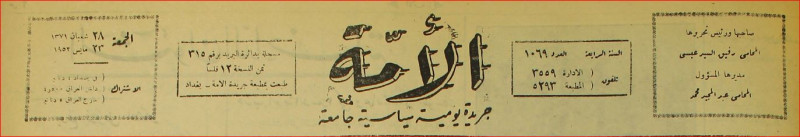 صاحبها ورئيس تحريرها
المحامي رفيق السيد عيسى
مديرها المسؤول
المحامي عبد المجيد محمد
السنة الرابعة العدد ١٠٦٩
تلفون
الادارة ٣٥٥٩
المطبعة ٥٢٩٣
الأمة
جريدة يومية سياسية جامعة
مسجلة بدائرة البريد برقم ٣١٥
ثمن النسخة ١٢ فلساً
طبعت بمطبعة جريدة الامة - بغداد
الجمعة
٢٨ شعبان ١٣٧١
٢٣ مايس ١٩٥٢
الاشتراك
داخل العراق
خارج العراق